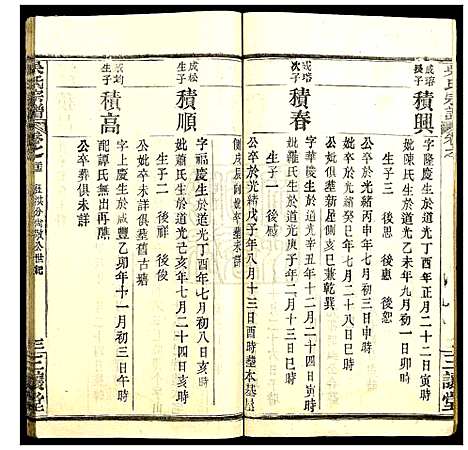 成培
長子
積興
字隆慶生於道光丁酉年正月二十二日寅時
妣陳氏生於道光乙未年九月初一日卯時
生子三 後思 後惠 後思
公卒於光緒丙申年七月初三日申時
公妣俱墓新屋側亥巳兼乾巽
成培
次子
積春
字華慶生於道光辛丑年十月二十八日戌時
公卒於光緒癸巳年七月二十八日巳時
妣羅氏生於道光庚子年七月二十四日寅時
生子一 後慼
公卒於光緒戊子年八月十三日酉時墓本基屋
側戌辰向妣卒墓未詳
成松
生子
積順
字福慶生於道光丁酉年七月初八日寅時
妣蕭氏生於道光己亥年七月二十四日亥時
生子二 後祥 後俊
公妣卒未詳俱墓舊古塘
成均
生子
積高
字上慶生於咸豐乙卯年十一月初三日午時
配譚氏無出再蘸
公卒葬俱未詳
吳氏宗譜
三讓堂